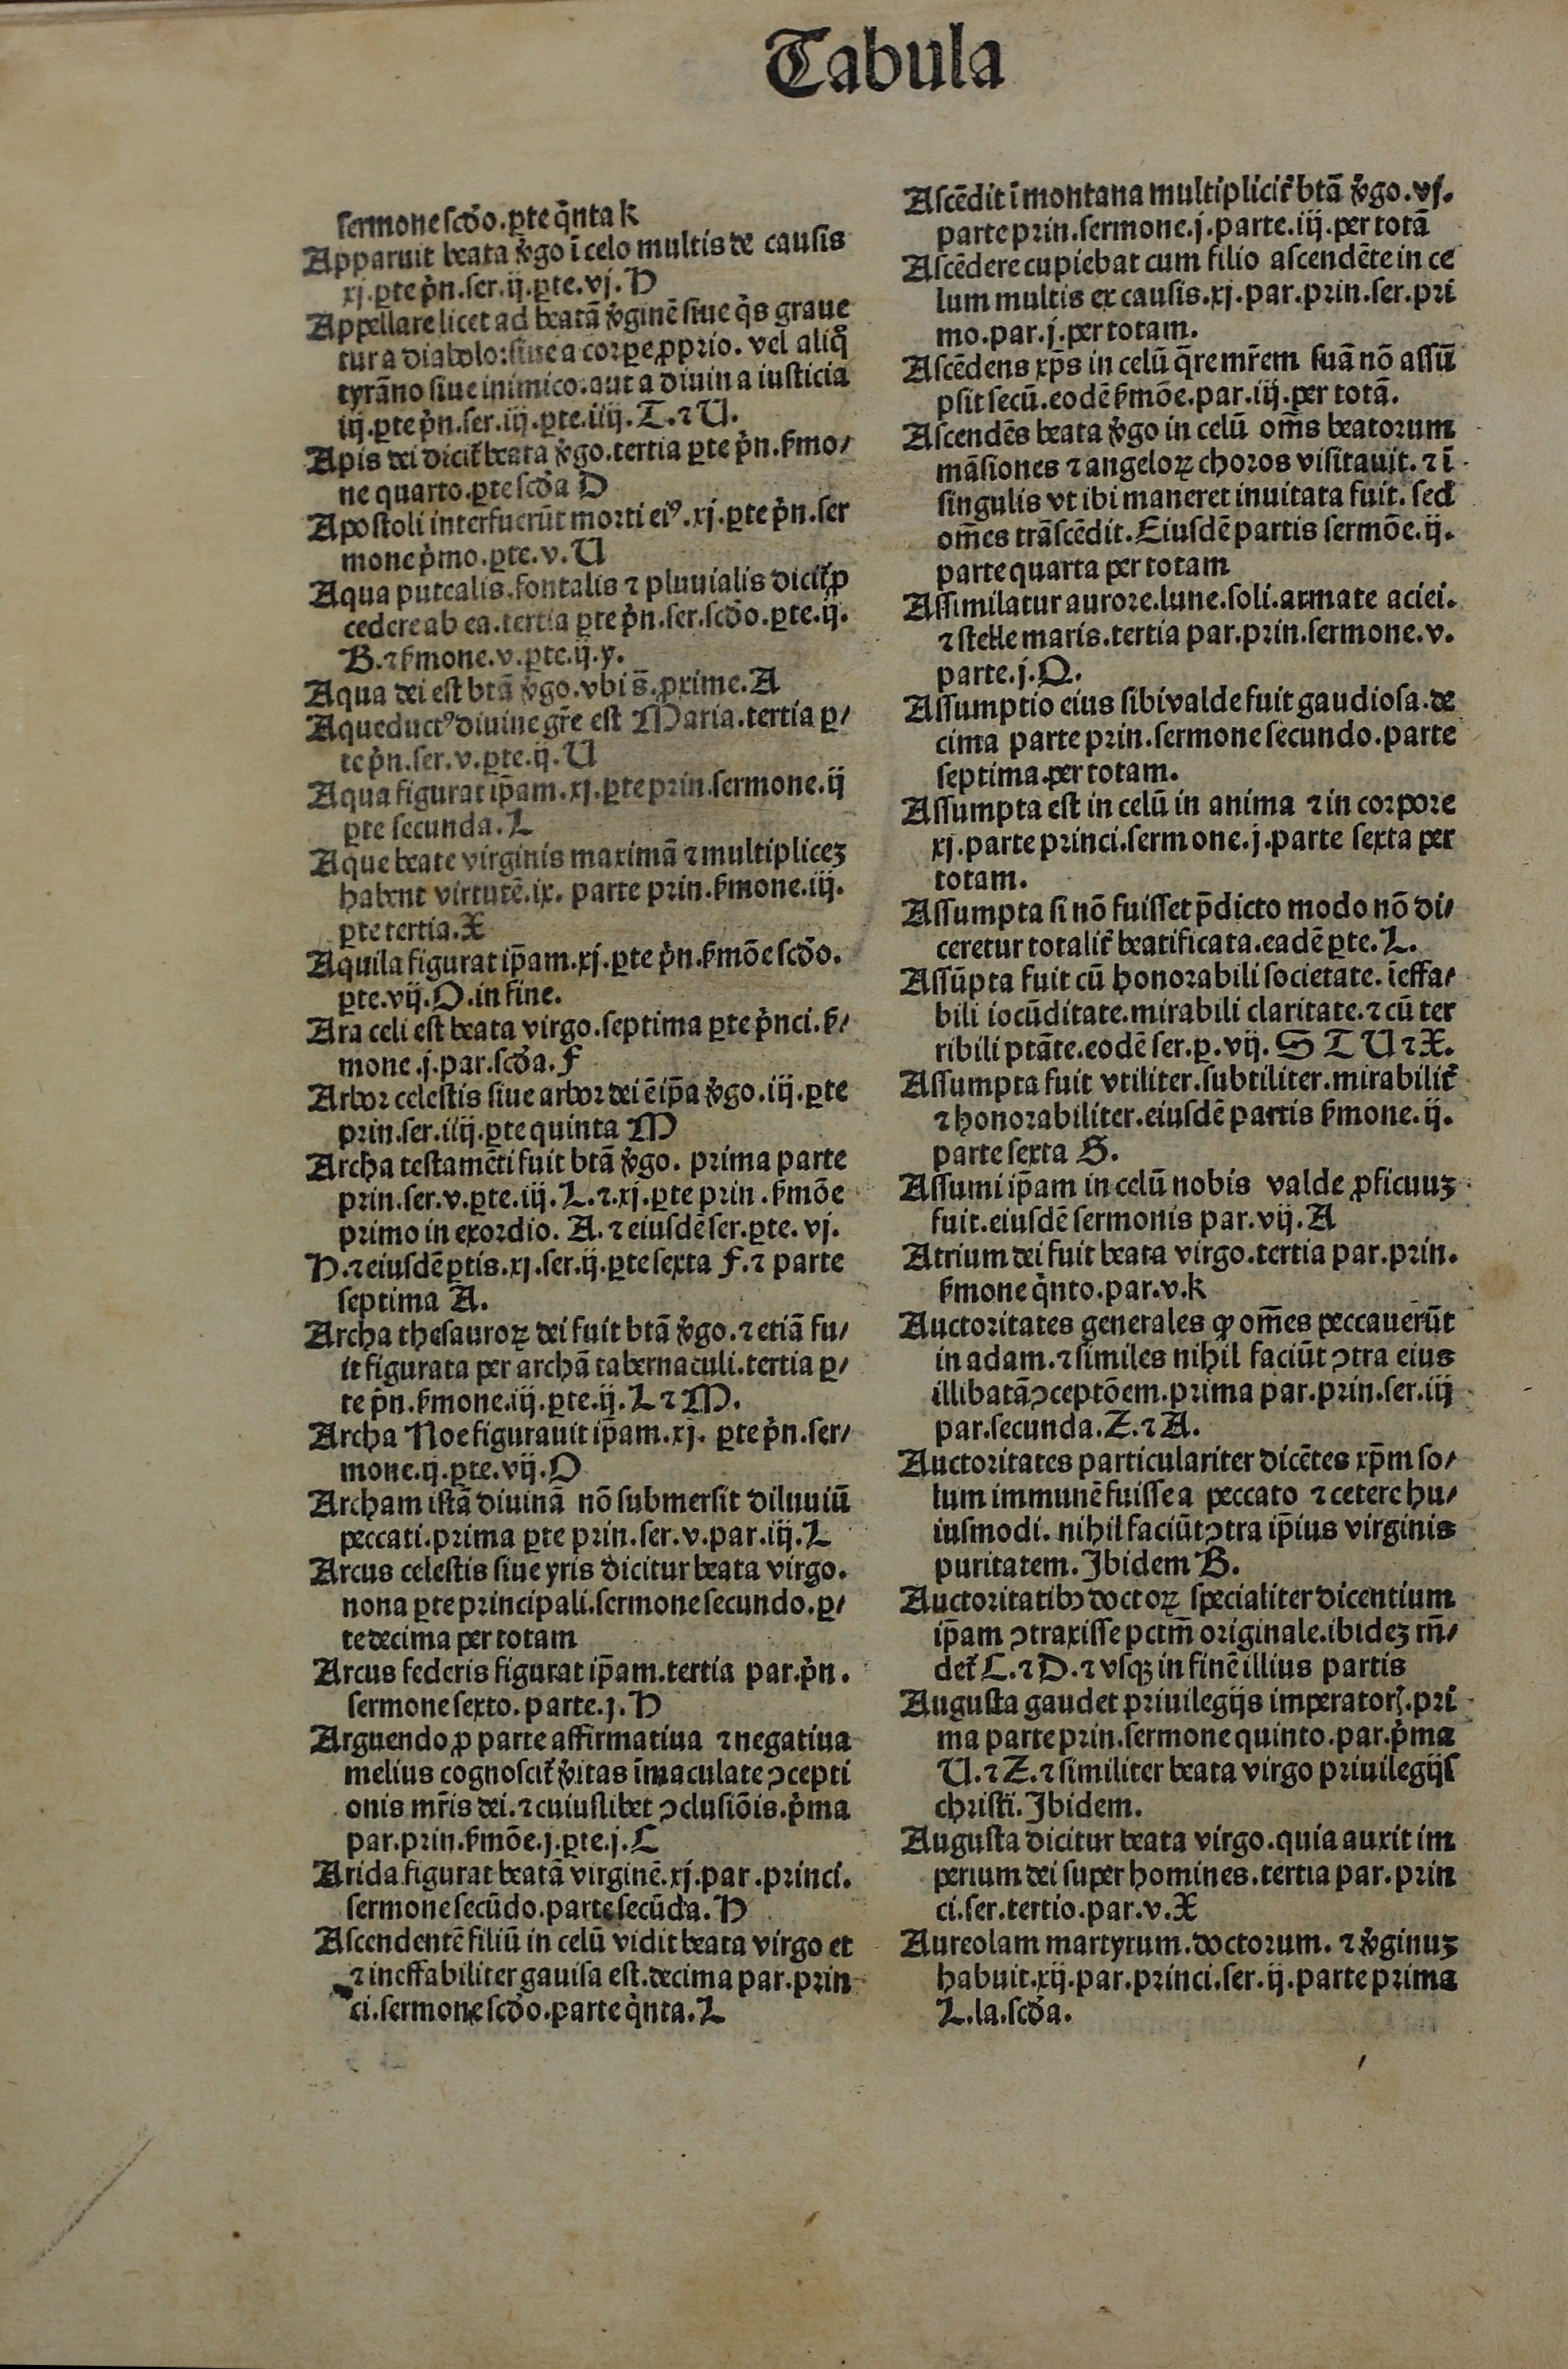 Tabula
sermone scd̕o.ꝑte q̇nta k
Apparuit beata v̓go ī celo multis de causis
xj.ꝑte p̓n.ser.ij.ꝑte.vj.H
Appellare licet ad beatā v̓ginē siue q̇s graue
tur a diabolo:siue a corꝑe ꝓprio. vel aliq̊
tyrāno siue inimico.aut a diuina iusticia
iij.ꝑte p̓n.ser.iij.ꝑte.iiij.T.⁊ U.
Apis dei dicit᷑ beata v̓go.tertia ꝑte p̓n.s̓mo/
ne quarto.ꝑte scd̓a D
Apostoli interfuerūt morti eiꝰ.xj.ꝑte p̓n.ser
mone p̓mo.ꝑte.v.U
Aqua putealis.fontalis ⁊ pluuialis dicit᷑ ꝓ
cedere ab ea.tertia ꝑte p̓n.ser.scd̕o.ꝑte.ij.
B.⁊ s̓mone.v.ꝑte.ij.y.
Aqua dei est btā v̓go.vbi s̄.ꝓxime.A
Aqueductꝰ diuine gr̄e est Maria.tertia ꝑ/
te p̓n.ser.v.ꝑte.ij.U
Aqua figurat ip̄am.xj.ꝑte prin.sermone.ij
ꝑte secunda.L
Aque beate virginis maximā ⁊ multipliceꝫ
habent virtutē.ix. parte prin.s̓mone.iij.
ꝑte tertia.X
Aquila figurat ip̄am.xj.ꝑte p̓n.s̓mōe scd̕o.
ꝑte.vij.O.in fine.
Ara celi est beata virgo.septima ꝑte p̓nci.s̓/
mone.j.par.scd̓a.F
Arbor celestis siue arbor dei ē ip̄a v̓go.iij.ꝑte
prin.ser.iiij.ꝑte quinta M
Archa testamēti fuit btā v̓go. prima parte
prin.ser.v.ꝑte.iij.L.⁊.xj.ꝑte prin.s̓mōe
primo in exordio. A.⁊ eiusdē ser.ꝑte. vj.
H.⁊ eiusdē ꝑtis.xj.ser.ij.ꝑte sexta F.⁊ parte
septima A.
Archa thesauroꝝ dei fuit btā v̓go.⁊ etiā fu/
it figurata per archā tabernaculi.tertia ꝑ/
te p̓n.s̓mone.iij.ꝑte.ij.L ⁊ M.
Archa Noe figurauit ip̄am.xj. ꝑte p̓n.ser/
mone.ij.ꝑte.vij.O
Archam istā diuinā nō submersit diluuiū
peccati.prima ꝑte prin.ser.v.par.iij.L
Arcus celestis siue yris dicitur beata virgo.
nona ꝑte principali.sermone secundo.ꝑ/
te decima per totam
Arcus federis figurat ip̄am.tertia par.p̓n.
sermone sexto.parte.j.H
Arguendo ꝓ parte affirmatiua ⁊ negatiua
melius cognoscit᷑ v̓itas īmaculate ↄcepti
onis mr̄is dei.⁊ cuiuslibet ↄclusiōis.p̓ma
par.prin.s̓mōe.j.ꝑte.j.C
Arida figurat beatā virginē.xj.par.princi.
sermone secūdo.parte secūda.H
Ascendentē filiū in celū vidit beata virgo et
⁊ ineffabiliter gauisa est.decima par.prin
ci.sermone scd̕o.parte q̇nta.L
Ascēdit ī montana multiplicit᷑ btā v̓go.vj.
parte prin.sermone.j.parte.iij.per totā
Ascēdere cupiebat cum filio ascendēte in ce
lum multis ex causis.xj.par.prin.ser.pri
mo.par.j.per totam.
Ascēdens xp̄s in celū q̄re mr̄em suā nō assū
psit secū.eodē s̓mōe.par.iij.per totā.
Ascendēs beata v̓go in celū om̄s beatorum
māsiones ⁊ angeloꝝ choros visitauit.⁊ ī
singulis vt ibi maneret inuitata fuit. sed
om̄es trāscēdit.Eiusdē partis sermōe.ij.
parte quarta per totam
Assimilatur aurore.lune.soli.armate aciei.
⁊ stelle maris.tertia par.prin.sermone.v.
parte.j.O.
Assumptio eius sibi valde fuit gaudiosa.de
cima parte prin.sermone secundo.parte
septima.per totam.
Assumpta est in celū in anima ⁊ in corpore
xj.parte princi.sermone.j.parte sexta per
totam.
Assumpta si nō fuisset p̄dicto modo nō di/
ceretur totalit᷑ beatificata.eadē ꝑte.L.
Assūpta fuit cū honorabili societate.īeffa/
bili iocūditate.mirabili claritate.⁊ cū ter
ribili ptāte.eodē ser.ꝑ.vij. S T U ⁊ X.
Assumpta fuit vtiliter.subtiliter.mirabilit᷑
⁊ honorabiliter.eiusdē partis s̓mone.ij.
parte sexta S.
Assumi ip̄am in celū nobis valde ꝓficuuꝫ
fuit.eiusdē sermonis par.vij.A
Atrium dei fuit beata virgo.tertia par.prin.
s̓mone q̇nto.par.v.k
Auctoritates generales ꝙ om̄es peccauerūt
in adam.⁊ similes nihil faciūt ↄtra eius
illibatā ↄceptōem.prima par.prin.ser.iij
par.secunda.Z.⁊ A.
Auctoritates particulariter dicētes xp̄m so/
lum immunē fuisse a peccato ⁊ cetere hu/
iusmodi. nihil faciūt ↄtra ip̄ius virginis
puritatem.Ibidem B.
Auctoritatibꝰ doctoꝝ specialiter dicentium
ip̄am ↄtraxisse pctm̄ originale.ibideꝫ rn̄/
det᷑ C.⁊ D.⁊ vsqꝫ in finē illius partis
Augusta gaudet priuilegijs imperatorꝭ.pri
ma parte prin.sermone quinto.par.p̓ma
U.⁊ Z.⁊ similiter beata virgo priuilegijs
christi.Ibidem.
Augusta dicitur beata virgo.quia auxit im
perium dei super homines.tertia par.prin
ci.ser.tertio.par.v.X
Aureolam martyrum.doctorum. ⁊ v̓ginuꝫ
habuit.xij.par.princi.ser.ij.parte prima
L.la.scd̓a.